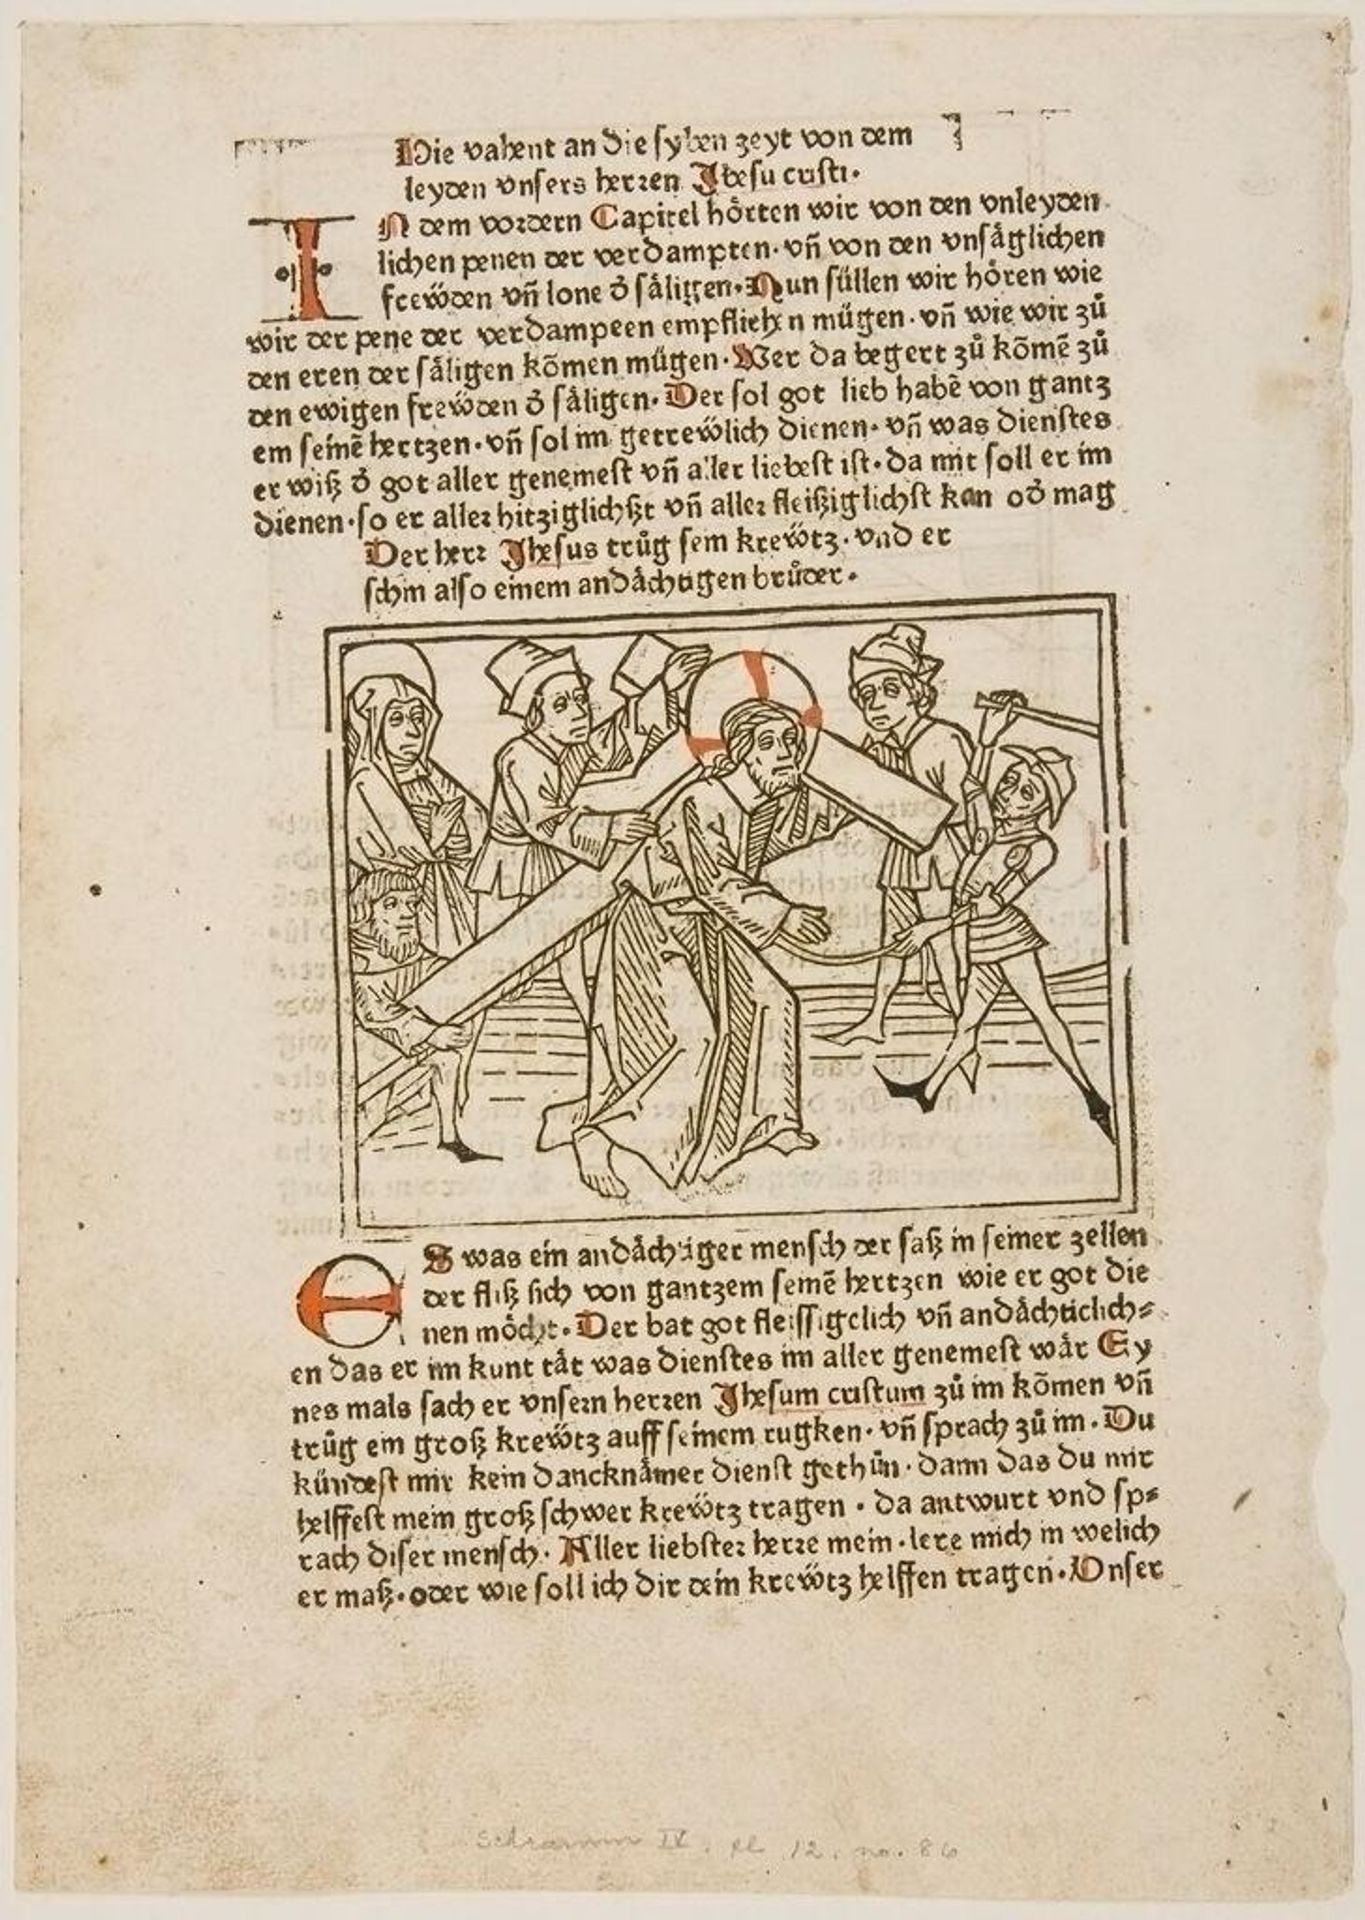 Hie vahent an die syben zeyt von dem
leyden vnsers herren Jhesu cristi.
IN dem vordern Capitel hôrten wir von den vnleyden
lichen penen der verdampten. vn̄ von den vnsåglichen
frewͤden vn̄ lone d̄ såligen. Nun süllen wir hôren wie
wir der pene der verdampeen empfliehen mügen. vn̄ wie wir zů
den eren der såligen kōmen mügen. Wer da begert zů kōmē zů
den ewigen frewͤden d̄ såligen. Der sol got lieb habē von gantz
em seinē hertzen. vn̄ sol im getrewͤlich dienen. vn̄ was dienstes
er wiß d̄ got aller genemest vn̄ aller liebest ist. da mit soll er im
dienen. so er aller hitziglichßt vn̄ aller fleißiglichst kan od̄ mag
Der herr Jhesus trůg sein krewͤtz. vnd er
schin also einem andåchtigen brůder.
ES was ein andåchtiger mensch der saß in seiner zellen
der fliß sich von gantzem seinē hertzen wie er got die
nen môcht. Der bat got fleissigclich vn̄ andåchticlich⸗
en das er im kunt tåt was dienstes im aller genemest wår Ey
nes mals sach er vnsern herren Jhesum cristum zů im kōmen vn̄
trůg ein groß krewͤtz auff seinem rugken. vn̄ sprach zů im. Du
kündest mir kein dancknåmer dienst gethůn. dann das du mir
helffest mein groß schwer krewͤtz tragen. da antwurt vnd sp⸗
rach diser mensch. Aller liebster herre mein. lere mich in welich
er maß. oder wie soll ich dir dein krewͤtz helffen tragen. Vnser
Schramm IV. pl 12. no. 86